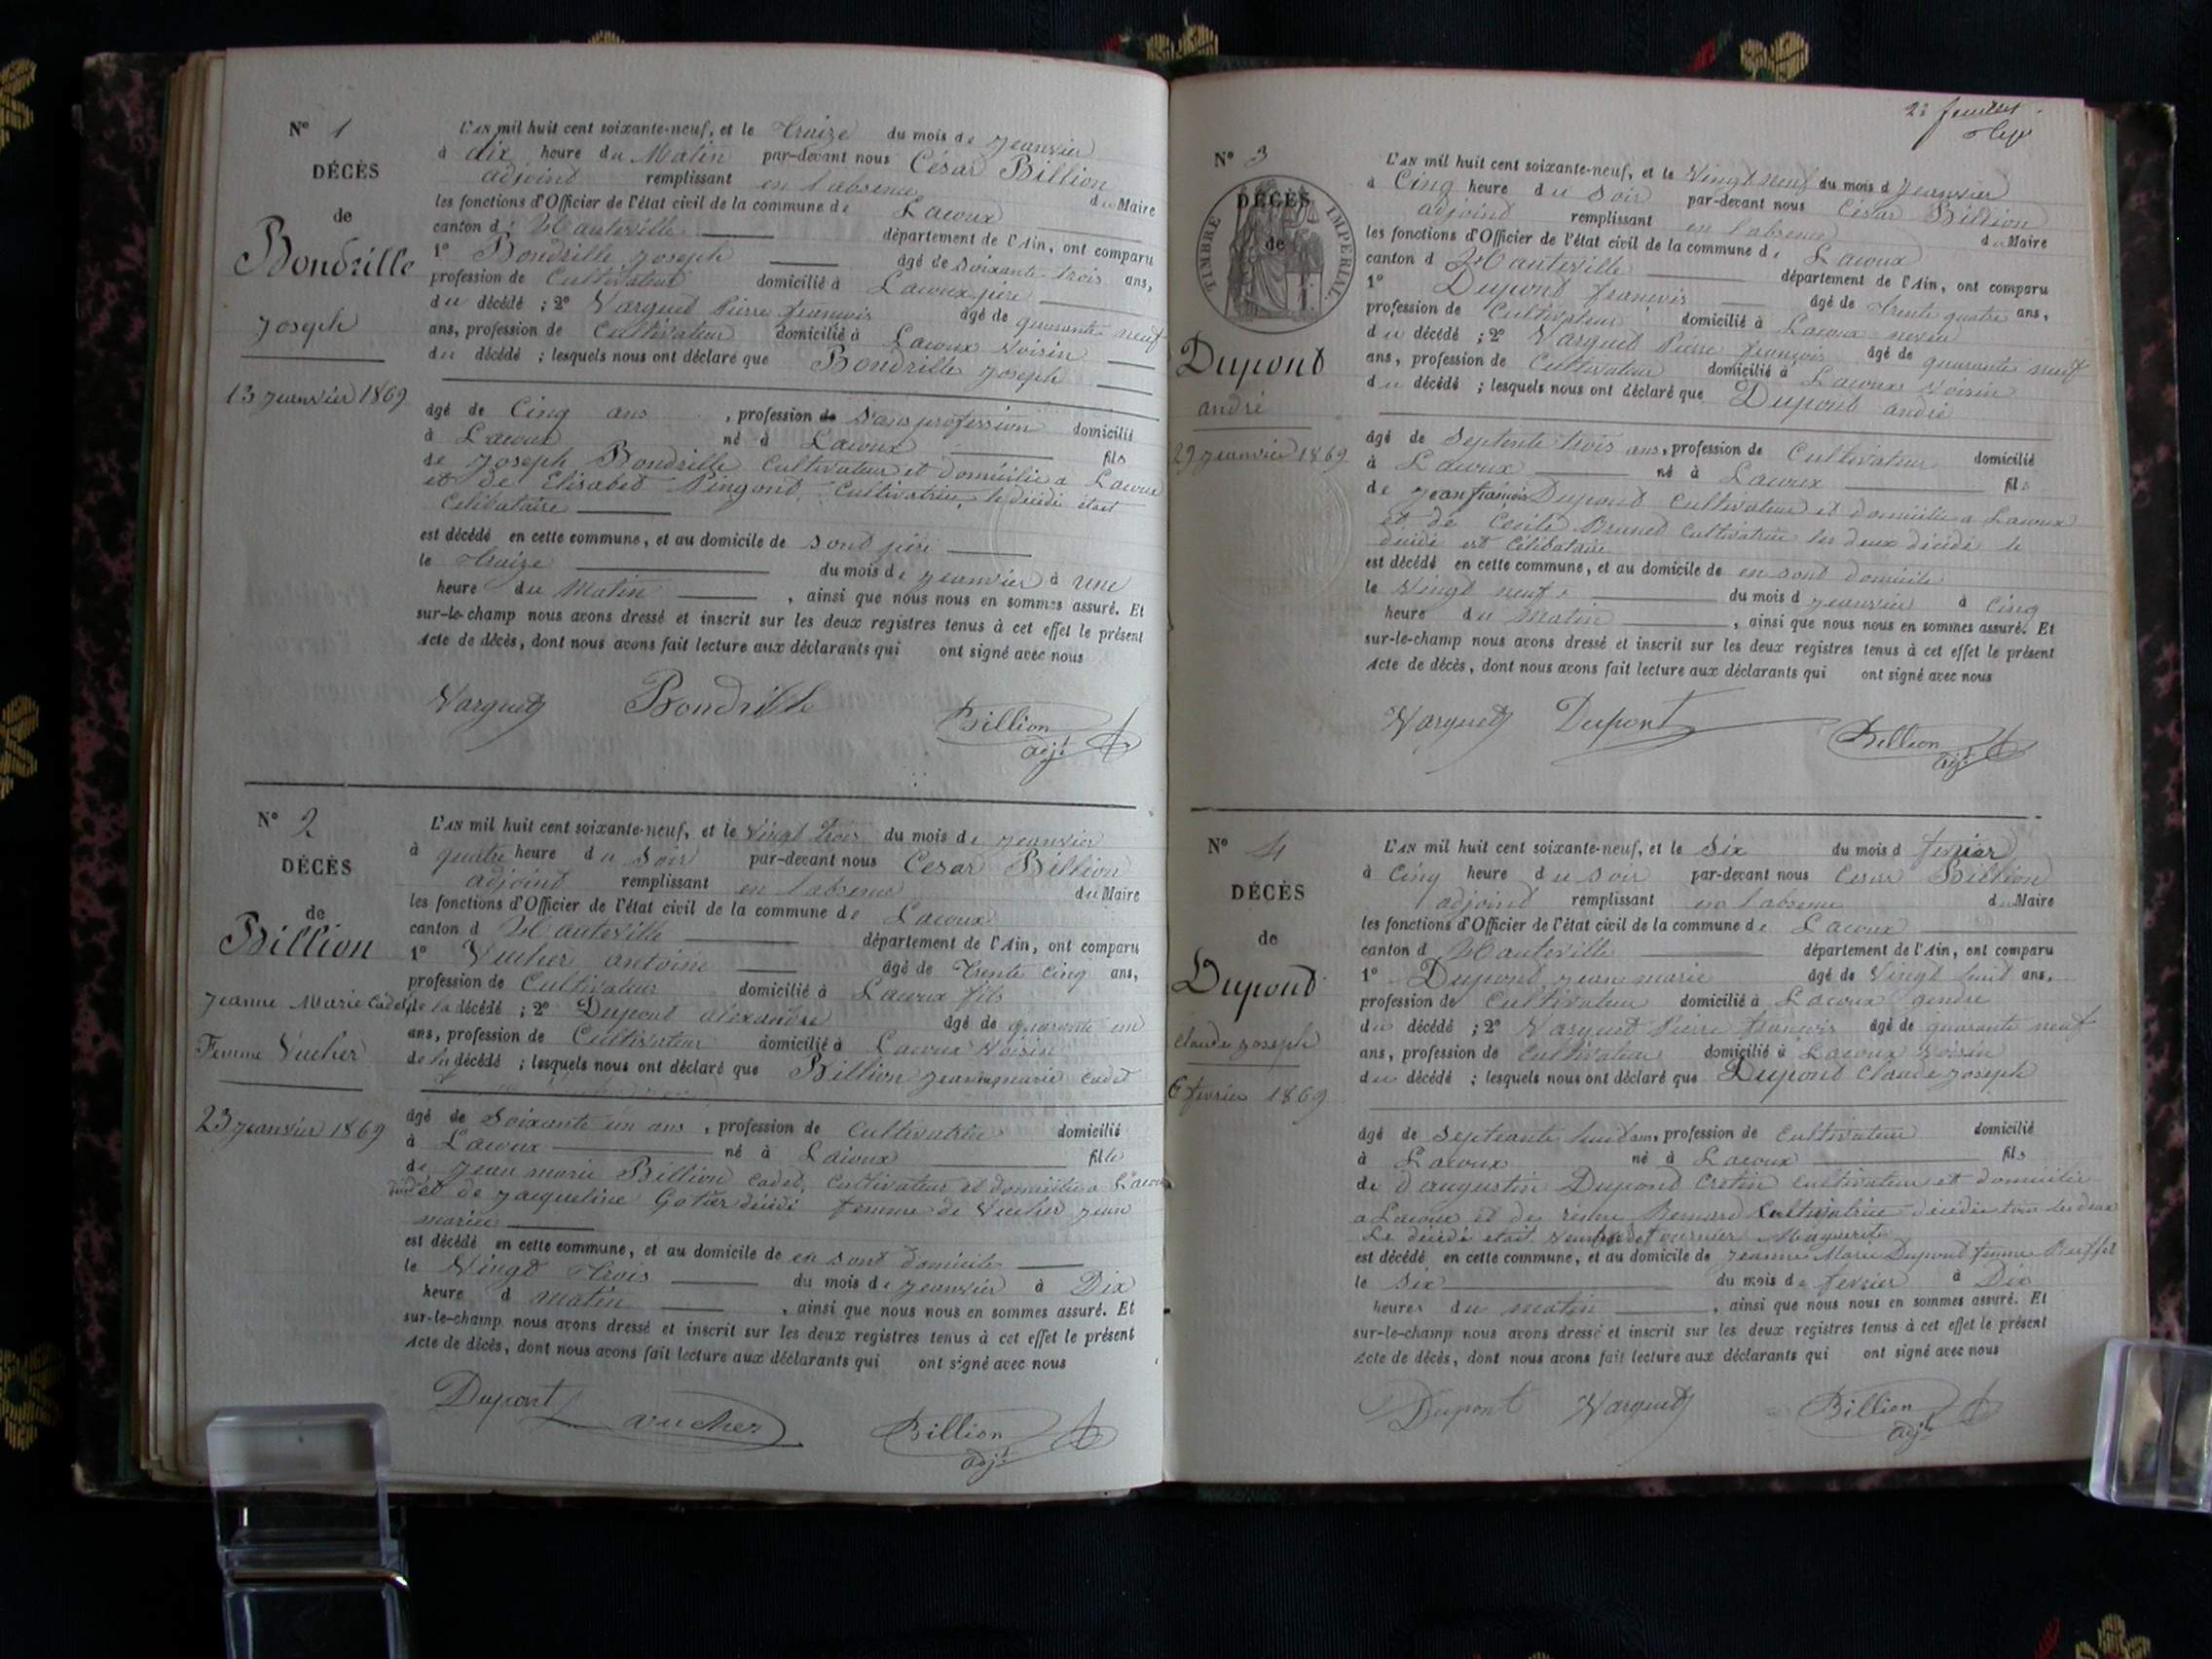 N° 1
DÉCÈS
de
Bondrille
Joseph
13 jeanvier 1869
L'AN mil huit cent soixante-neuf, et le Traize du mois de jeanvier
à dix heure du Matin par-devant nous César Billion
adjoint remplissant en l'absence du Maire
les fonctions d'Officier de l'état civil de la commune de Lacoux
canton d' Hauteville département de l'Ain, ont comparu
1° Bondrille Joseph âgé de soixante trois ans,
profession de Cultivateur domicilié à Lacoux père
du décédé ; 2° Varguet Pierre francois âgé de quarante neuf
ans, profession de Cultivateur domicilié à Lacoux Voisin
du décédé ; lesquels nous ont déclaré que Bondrille Joseph
âgé de Cinq ans , profession de sans profession domicilié
à Lacoux né à Lacoux fils
de Joseph Bondrille Cultivateur et domicilie a Lacoux
et de Elisabet Pingond Cultivatrice, le décédé était
Celibataire
est décédé en cette commune, et au domicile de sont père
le Traize du mois de jeanvier à une
heure du Matin , ainsi que nous nous en sommes assuré. Et
sur-le-champ nous avons dressé et inscrit sur les deux registres tenus à cet effet le présent
Acte de décès, dont nous avons fait lecture aux déclarants qui ont signé avec nous
Varguet Bondrille Billion
adjt
N° 2
DÉCÈS
de
Billion
Jeanne Marie Cadet
Femme Vucher
23 jeanvier 1869
L'AN mil huit cent soixante-neuf, et le Vingt trois du mois de jeanvier
à quatre heure du soir par-devant nous César Billion
adjoint remplissant en l'absence du Maire
les fonctions d'Officier de l'état civil de la commune de Lacoux
canton d Hauteville département de l'Ain, ont comparu
1° Vucher antoine âgé de Trente cinq ans,
profession de Cultivateur domicilié à Lacoux fils
de la décédé ; 2° Dupont alexandre âgé de quarante un
ans, profession de Cultivateur domicilié à Lacoux Voisin
de la décédé ; lesquels nous ont déclaré que Billion jeanne marie cadet
âgé de Soixante un ans , profession de Cultivatrice domicilié
à Lacoux né à Lacoux fille
de jean marie Billion Cadet, Cultivateur et domicilie a Lacoux
et de jacqueline Gotier décédé femme de Vucher jean
mariee
est décédé en cette commune, et au domicile de en sont domicile
le Vingt Trois du mois de jeanvier à Dix
heure d matin , ainsi que nous nous en sommes assuré. Et
sur-le-champ nous avons dressé et inscrit sur les deux registres tenus à cet effet le présent
Acte de décès, dont nous avons fait lecture aux déclarants qui ont signé avec nous
Dupont avucher Billion
adjt
2e feuillet
N° 3
DÉCÈS
de
TIMBRE IMPERIAL
Dupond
andré
29 jeanvier 1869
L'AN mil huit cent soixante-neuf, et le Vingt neuf du mois d jeanvier
à Cinq heure du soir par-devant nous César Billion
adjoind remplissant en l'absence du Maire
les fonctions d'Officier de l'état civil de la commune de Lacoux
canton d Hauteville département de l'Ain, ont comparu
1° Dupond francois âgé de Trente quatre ans,
profession de Cultivateur domicilié à Lacoux neveu
du décédé ; 2° Varguet Pierre francois âgé de quarante neuf
ans, profession de Cultivateur domicilié à Lacoux Voisin
du décédé ; lesquels nous ont déclaré que Dupond andré
âgé de Septente trois ans, profession de Cultivateur domicilié
à Lacoux né à Lacoux fils
de jean francois Dupond Cultivateur et domicilie a Lacoux
et de Cécile Brunet Cultivatrice les deux décédé le
décédé est Célibataire
est décédé en cette commune, et au domicile de en sont domicile
le Vingt neuf du mois d jeanvier à Cinq
heure du Matin , ainsi que nous nous en sommes assuré. Et
sur-le-champ nous avons dressé et inscrit sur les deux registres tenus à cet effet le présent
Acte de décès, dont nous avons fait lecture aux déclarants qui ont signé avec nous
Varguet Dupont Billion
adjt
N° 4
DÉCÈS
de
Dupond
Claude Joseph
6 fevrier 1869
L'AN mil huit cent soixante-neuf, et le Six du mois d fevrier
à Cinq heure du soir par-devant nous César Billion
adjoind remplissant en l'absence du Maire
les fonctions d'Officier de l'état civil de la commune de Lacoux
canton d Hauteville département de l'Ain, ont comparu
1° Dupond jean marie âgé de Vingt huit ans,
profession de Cultivateur domicilié à Lacoux gendre
du décédé ; 2° Varguet Pierre francois âgé de quarante neuf
ans, profession de Cultivateur domicilié à Lacoux Voisin
du décédé ; lesquels nous ont déclaré que Dupond Claude Joseph
âgé de Septeante huit ans, profession de Cultivateur domicilié
à Lacoux né à Lacoux fils
de d'augustin Dupond Cretin Cultivateur et domicilie
a Lacoux et de Bernard Cultivatrice décédée tous les deux
Le décédé etait veuf de fournier Marguerite
est décédé en cette commune, et au domicile de jeanne Marie Dupond femme
le six du mois de fevrier à Dix
heures du matin , ainsi que nous nous en sommes assuré. Et
sur-le-champ nous avons dressé et inscrit sur les deux registres tenus à cet effet le présent
Acte de décès, dont nous avons fait lecture aux déclarants qui ont signé avec nous
Dupont Varguet Billion
adjt